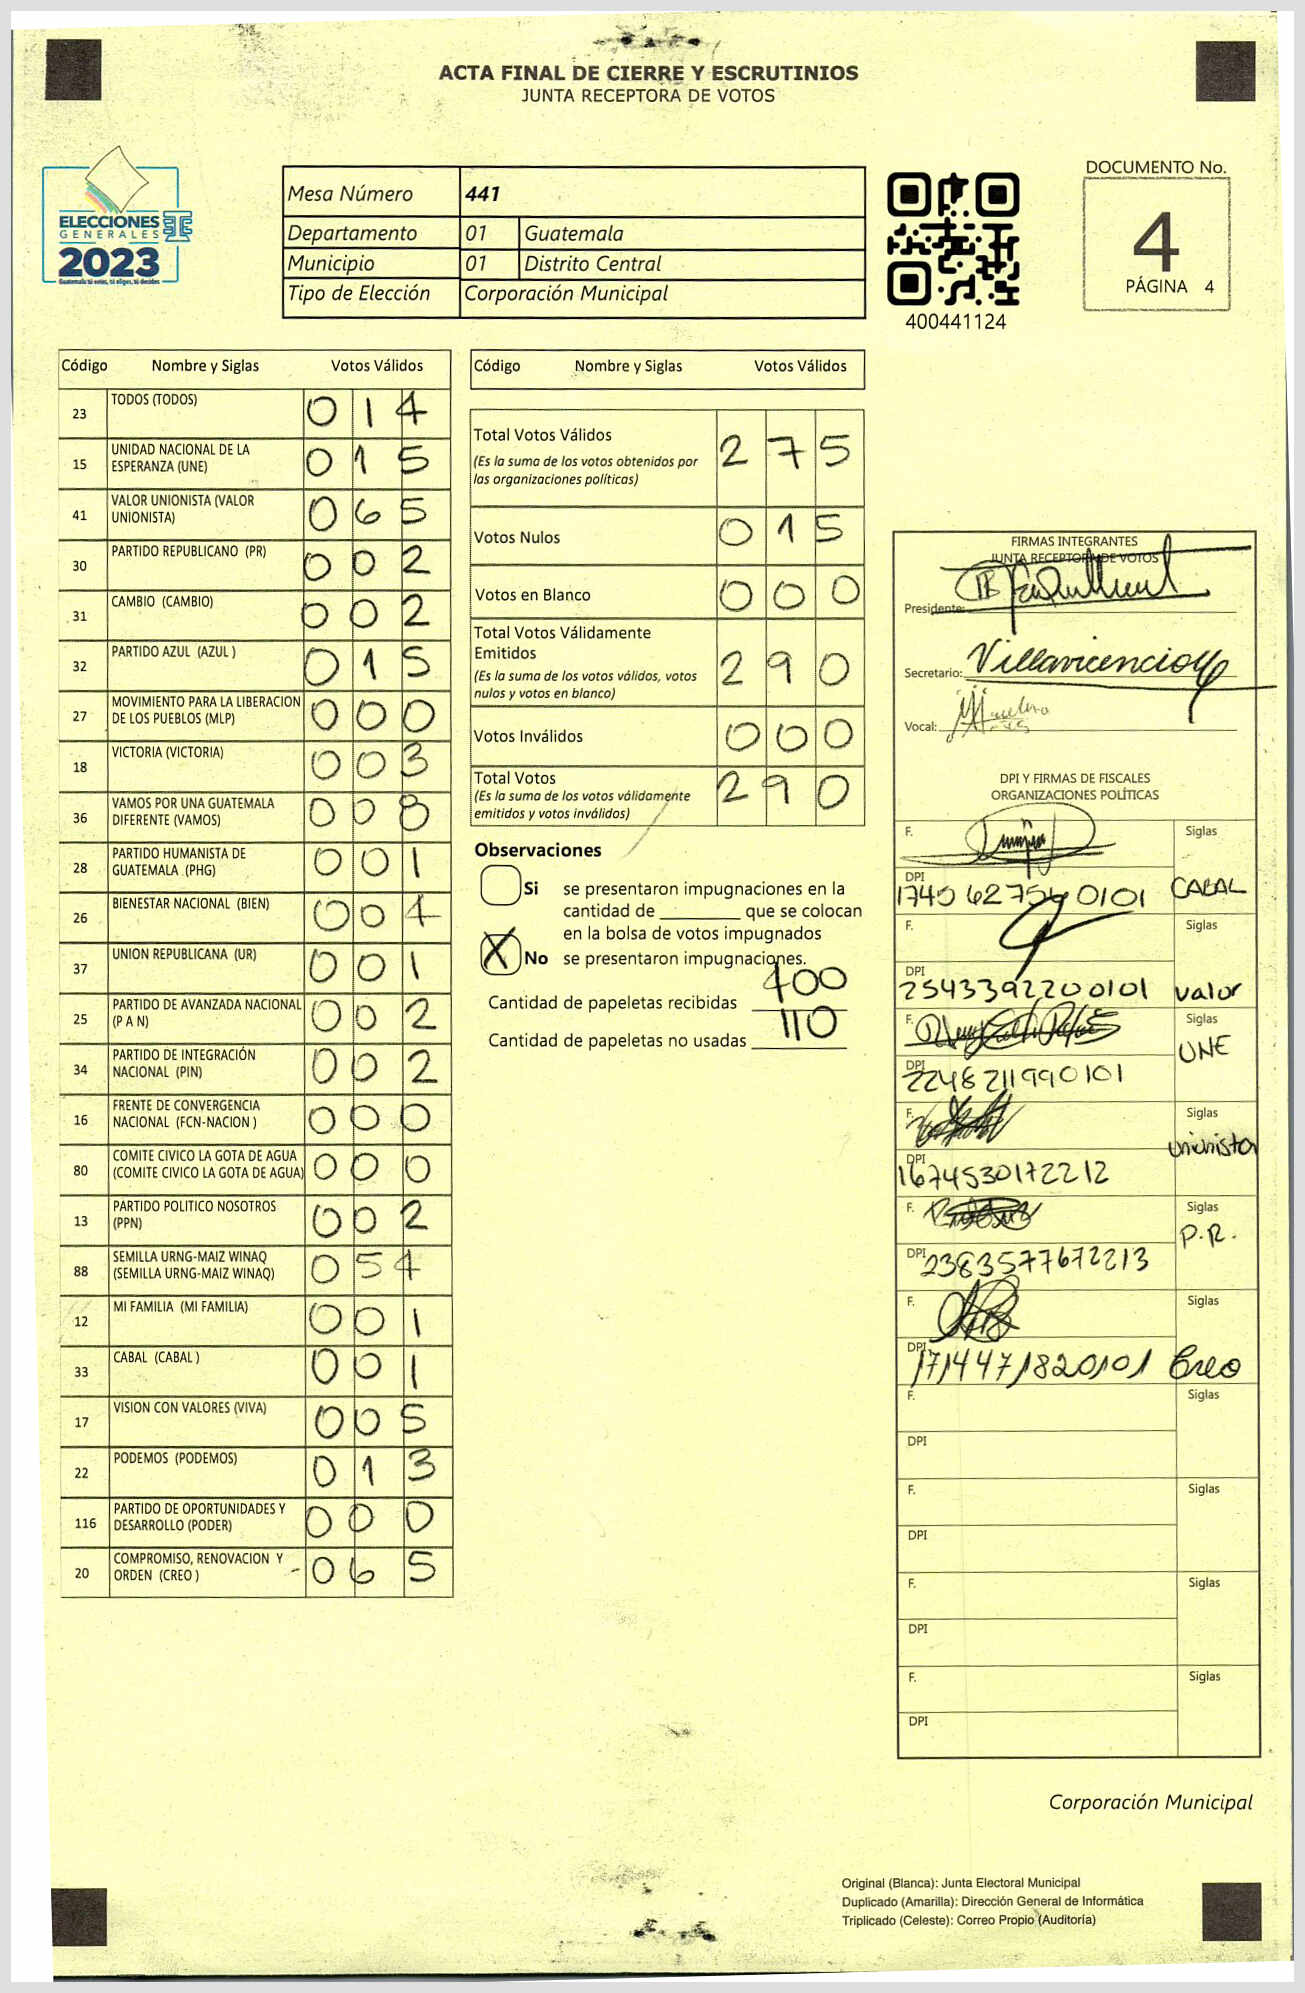 ACTA FINAL DE CIERRE Y ESCRUTINIOS
JUNTA RECEPTORA DE VOTOS
ELECCIONES
GENERALES
2023
Guatemala tú votas, tú eliges, tú decides
Mesa Número 441
Departamento 01 Guatemala
Municipio 01 Distrito Central
Tipo de Elección Corporación Municipal
400441124
DOCUMENTO No.
4
PÁGINA 4
Código Nombre y Siglas Votos Válidos
23 TODOS (TODOS) 0 1 4
15 UNIDAD NACIONAL DE LA
ESPERANZA (UNE) 0 1 5
41 VALOR UNIONISTA (VALOR
UNIONISTA) 0 6 5
30 PARTIDO REPUBLICANO (PR) 0 0 2
31 CAMBIO (CAMBIO) 0 0 2
32 PARTIDO AZUL (AZUL ) 0 1 5
27 MOVIMIENTO PARA LA LIBERACION
DE LOS PUEBLOS (MLP) 0 0 0
18 VICTORIA (VICTORIA) 0 0 3
36 VAMOS POR UNA GUATEMALA
DIFERENTE (VAMOS) 0 0 8
28 PARTIDO HUMANISTA DE
GUATEMALA (PHG) 0 0 1
26 BIENESTAR NACIONAL (BIEN) 0 0 4
37 UNION REPUBLICANA (UR) 0 0 1
25 PARTIDO DE AVANZADA NACIONAL
(P A N) 0 0 2
34 PARTIDO DE INTEGRACIÓN
NACIONAL (PIN) 0 0 2
16 FRENTE DE CONVERGENCIA
NACIONAL (FCN-NACION ) 0 0 0
80 COMITE CIVICO LA GOTA DE AGUA
(COMITE CIVICO LA GOTA DE AGUA) 0 0 0
13 PARTIDO POLITICO NOSOTROS
(PPN) 0 0 2
88 SEMILLA URNG-MAIZ WINAQ
(SEMILLA URNG-MAIZ WINAQ) 0 5 4
12 MI FAMILIA (MI FAMILIA) 0 0 1
33 CABAL (CABAL ) 0 0 1
17 VISION CON VALORES (VIVA) 0 0 5
22 PODEMOS (PODEMOS) 0 1 3
116 PARTIDO DE OPORTUNIDADES Y
DESARROLLO (PODER) 0 0 0
20 COMPROMISO, RENOVACION Y
ORDEN (CREO ) 0 6 5
Código Nombre y Siglas Votos Válidos
Total Votos Válidos 2 7 5
(Es la suma de los votos obtenidos por
las organizaciones políticas)
Votos Nulos 0 1 5
Votos en Blanco 0 0 0
Total Votos Válidamente
Emitidos 2 9 0
(Es la suma de los votos válidos, votos
nulos y votos en blanco)
Votos Inválidos 0 0 0
Total Votos 2 9 0
(Es la suma de los votos válidamente
emitidos y votos inválidos)
Observaciones
Si se presentaron impugnaciones en la
cantidad de ________ que se colocan
en la bolsa de votos impugnados
X No se presentaron impugnaciones.
Cantidad de papeletas recibidas 400
Cantidad de papeletas no usadas 110
FIRMAS INTEGRANTES
JUNTA RECEPTORA DE VOTOS
Presidente:
Secretario: Villavicencio
Vocal:
DPI Y FIRMAS DE FISCALES
ORGANIZACIONES POLÍTICAS
F. Siglas
DPI CABAL
F. Siglas
DPI
2543392200101 Valor
F. Siglas
UNE
DPI
2248211990101
F. Siglas
unionista
DPI
1674530172212
F. Siglas
P.R.
DPI 2383577672213
F. Siglas
DPI
1714471820101 Creo
F. Siglas
DPI
F. Siglas
DPI
F. Siglas
DPI
F. Siglas
DPI
Corporación Municipal
Original (Blanca): Junta Electoral Municipal
Duplicado (Amarilla): Dirección General de Informática
Triplicado (Celeste): Correo Propio (Auditoría)